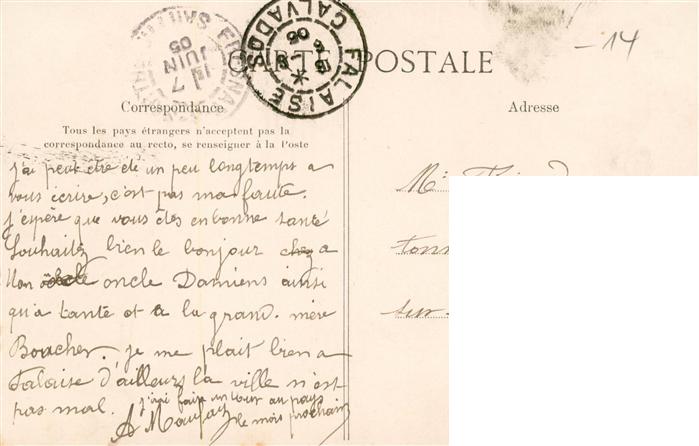 CARTE POSTALE
FALAISE
CALVADOS
7
JUIN
05
-14
Correspondance
Adresse
Tous les pays étrangers n'acceptent pas la
correspondance au recto, se renseigner à la Poste
j'ai peut etre été un peu longtemps a
vous écrire, c'est pas ma faute.
j'espère que vous êtes en bonne santé
Souhaitez bien le bonjour a
Mon oncle Damiens ainsi
qu'a tante et a la grand-mère
Boucher. je me plait bien a
Falaise d'ailleurs la ville n'est
pas mal. j'irai faire un tour au pays
le mois prochain
A